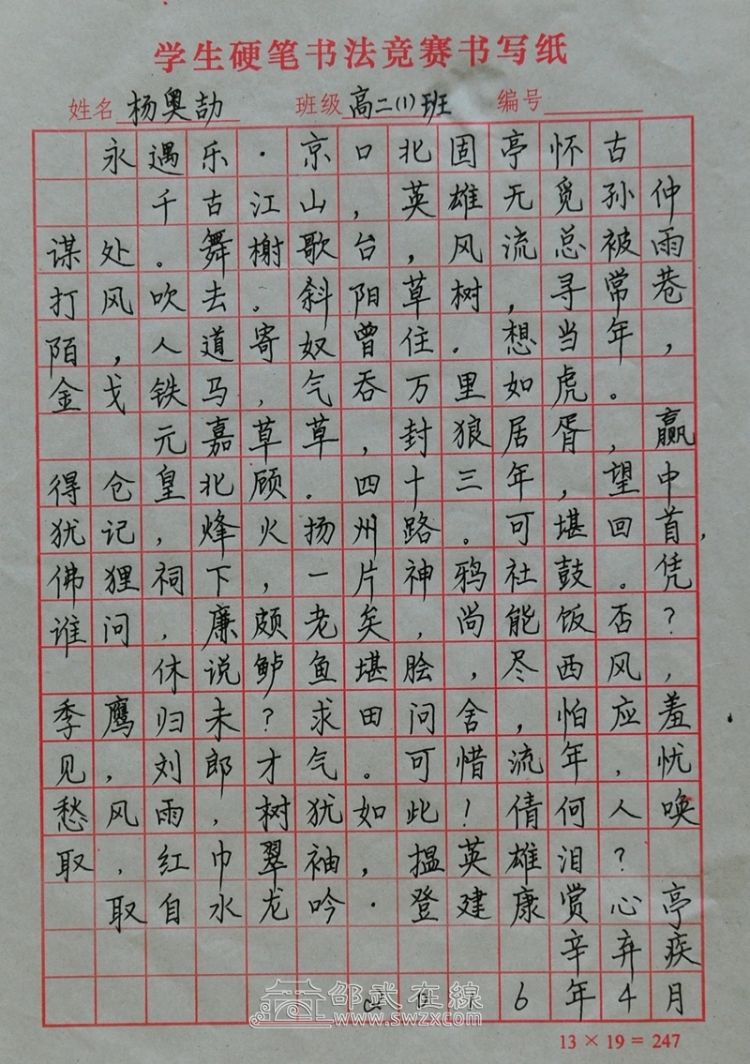 学生硬笔书法竞赛书写纸
姓名 杨奥劼 班级 高二(1)班 编号
永遇乐·京口北固亭怀古
千古江山，英雄无觅孙仲
谋处。舞榭歌台，风流总被雨
打风吹去。斜阳草树，寻常巷
陌，人道寄奴曾住．想当年，
金戈铁马，气吞万里如虎。
元嘉草草，封狼居胥，赢
得仓皇北顾．四十三年，望中
犹记，烽火扬州路。可堪回首，
佛狸祠下，一片神鸦社鼓。凭
谁问，廉颇老矣，尚能饭否？
休说鲈鱼堪脍，尽西风，
季鹰归未？求田问舍，怕应羞
见，刘郎才气。可惜流年，忧
愁风雨，树犹如此！倩何人唤
取，红巾翠袖，揾英雄泪？
取自水龙吟·登建康赏心亭
辛弃疾
6年4月
邵武在線
www.swzx.com
13×19=247